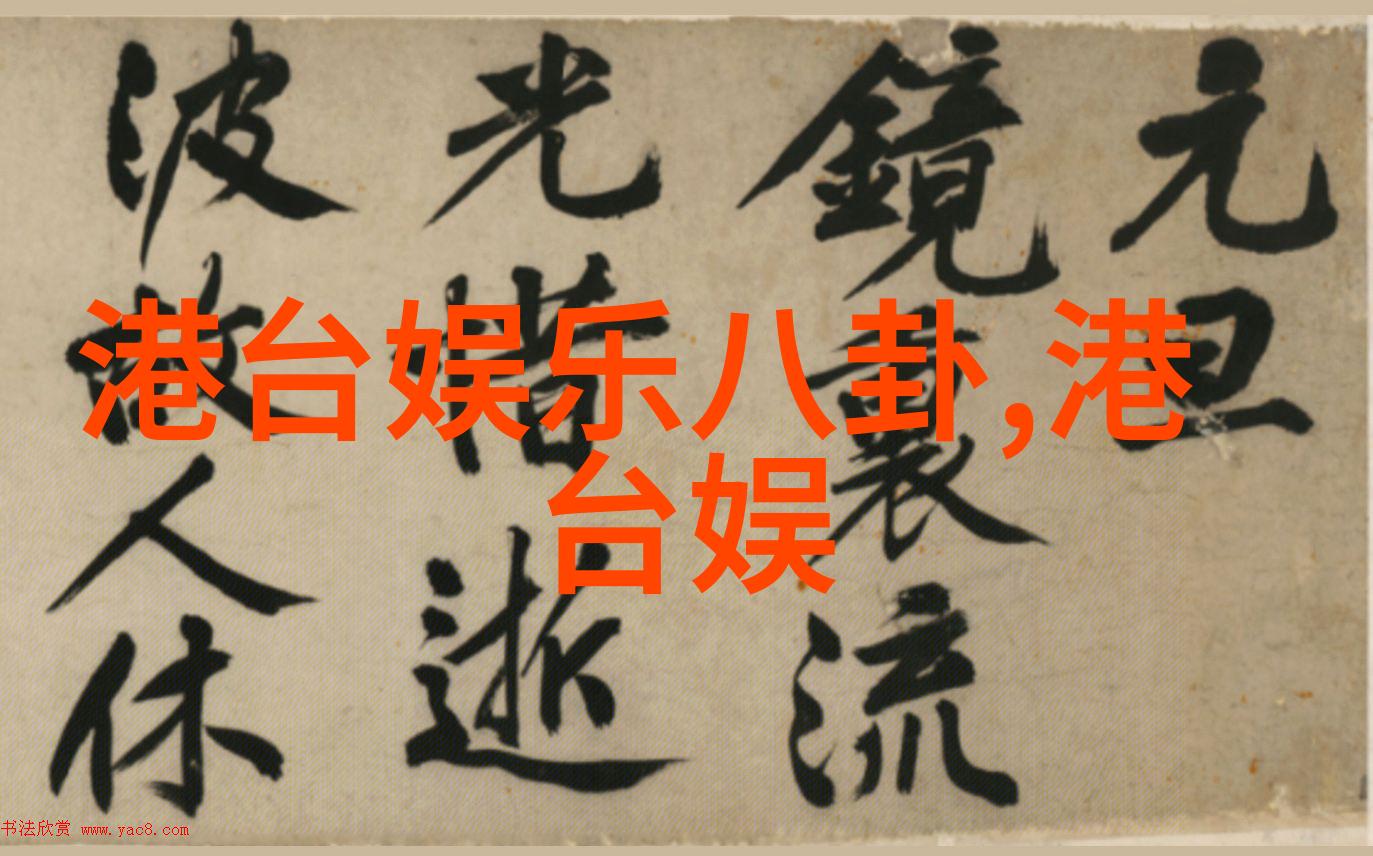 元旦
鏡裏流
光惜逝
波故人休
港台娱乐八卦,港
台娱
书法欣赏 www.yac8.com